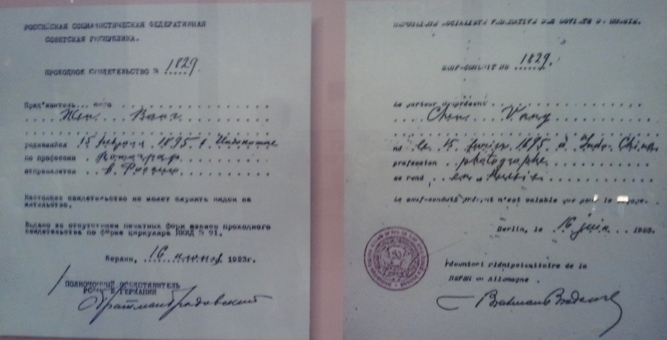 РОССИЙСКАЯ СОЦИАЛИСТИЧЕСКАЯ ФЕДЕРАТИВНАЯ
СОВЕТСКАЯ РЕСПУБЛИКА.
ПРОХОДНОЕ СВИДЕТЕЛЬСТВО № 1829.
Пред'явитель
Чен Ванг
родившийся 15 1895 в Индокитае
по профессии Фотограф
отправляется в Россию
Настоящее свидетельство не может служить видом на
жительство.
Выдано за отсутствием печатных форм взамен проходного
свидетельства по форме циркуляра НКИД № 91.
Берлин, 16 1923г.
ПОЛНОМОЧНЫЙ ПРЕДСТАВИТЕЛЬ
ГЕРМАНИИ
SAUF-CONDUIT No 1829.
Le porteur du présent
Chen Vang
né le 15 1895 à Indo-Chine
profession photographe
se rend en Russie
Le sauf-conduit n'est valable que pour le voyage.
Berlin, le 16 1923.
Plénipotentiaire de la
en Allemagne.